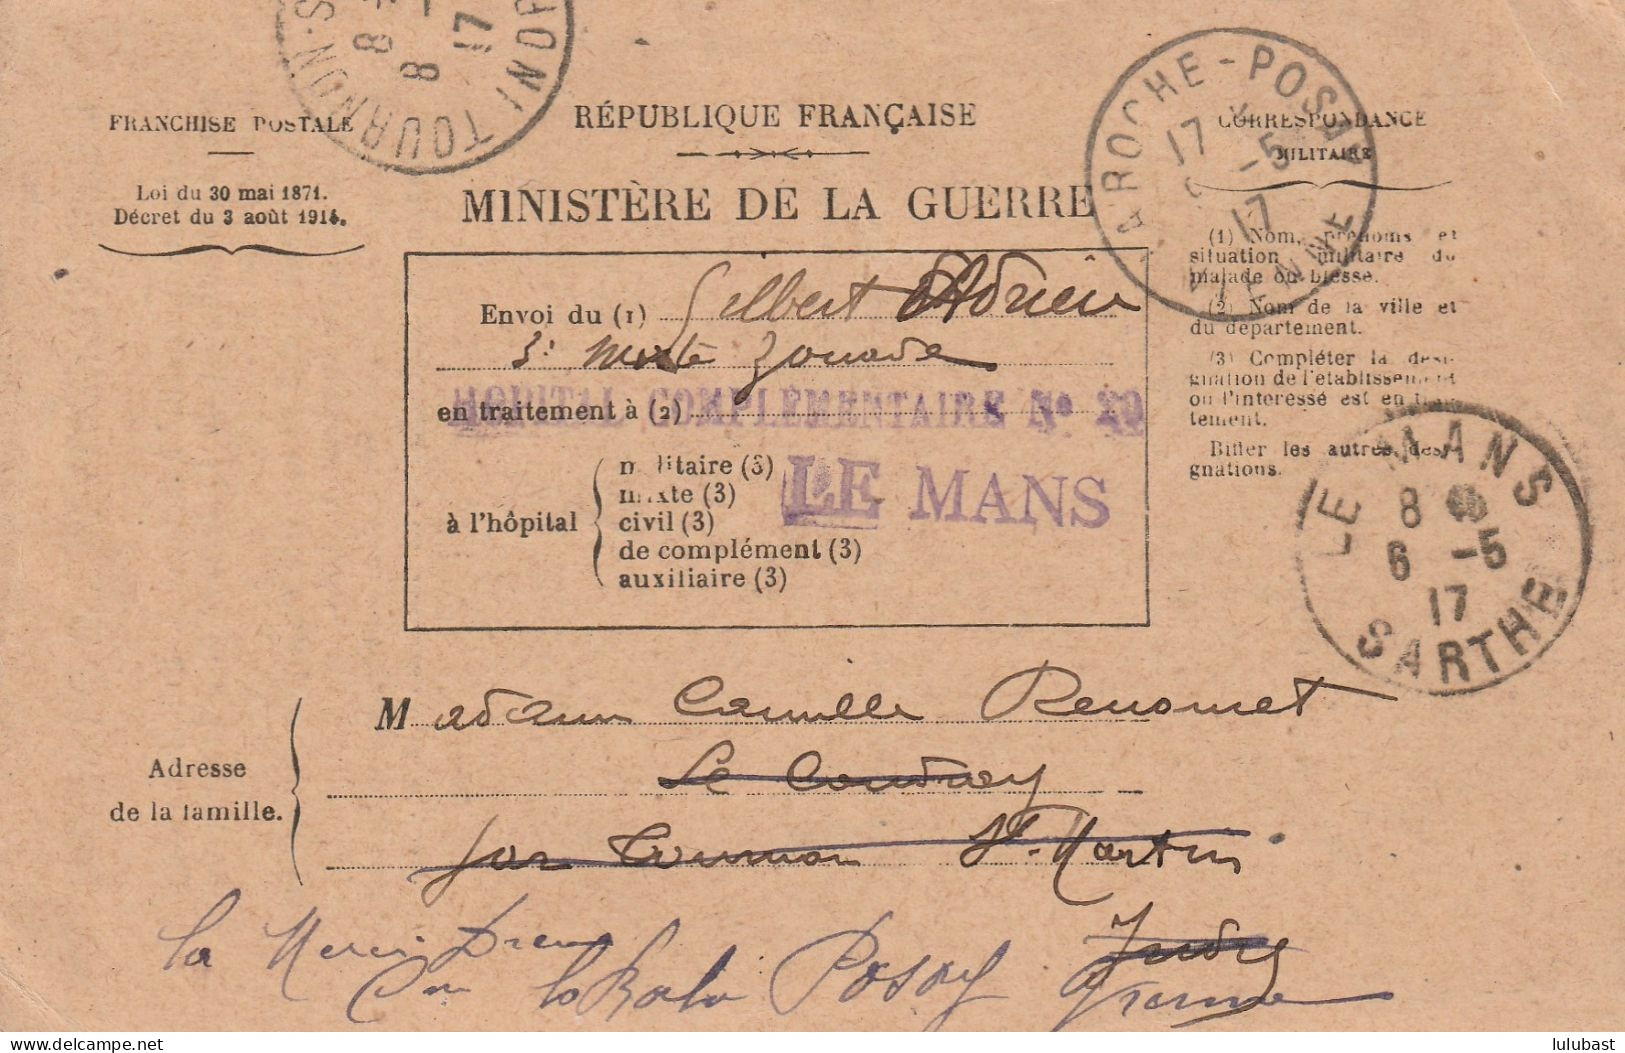 TOURNON-S
INDRE
8
8
17
FRANCHISE POSTALE
Loi du 30 mai 1871.
Décret du 3 août 1914.
RÉPUBLIQUE FRANÇAISE
MINISTÈRE DE LA GUERRE
LA ROCHE-POSAY
17
-5
17
VIENNE
CORRESPONDANCE
MILITAIRE
(1) Nom, prénoms et
situation militaire du
malade ou blessé.
(2) Nom de la ville et
du département.
(3) Compléter la dési-
gnation de l'établissement
où l'intéressé est en trai-
tement.
Biffer les autres dési-
gnations.
Envoi du (1) Gilbert Adrien
3e mixte Zouave
en traitement à (2)
HÔPITAL COMPLÉMENTAIRE No 20
LE MANS
à l'hôpital
militaire (3)
mixte (3)
civil (3)
de complément (3)
auxiliaire (3)
LE MANS
8
6 -5
17
SARTHE
Adresse
de la famille.
Madame Camille Renomet
Le Coudray
par Tournon St-Martin
Indre
La Merci Dieu
la Roche Posay Vienne
lulubast
delcampe.net